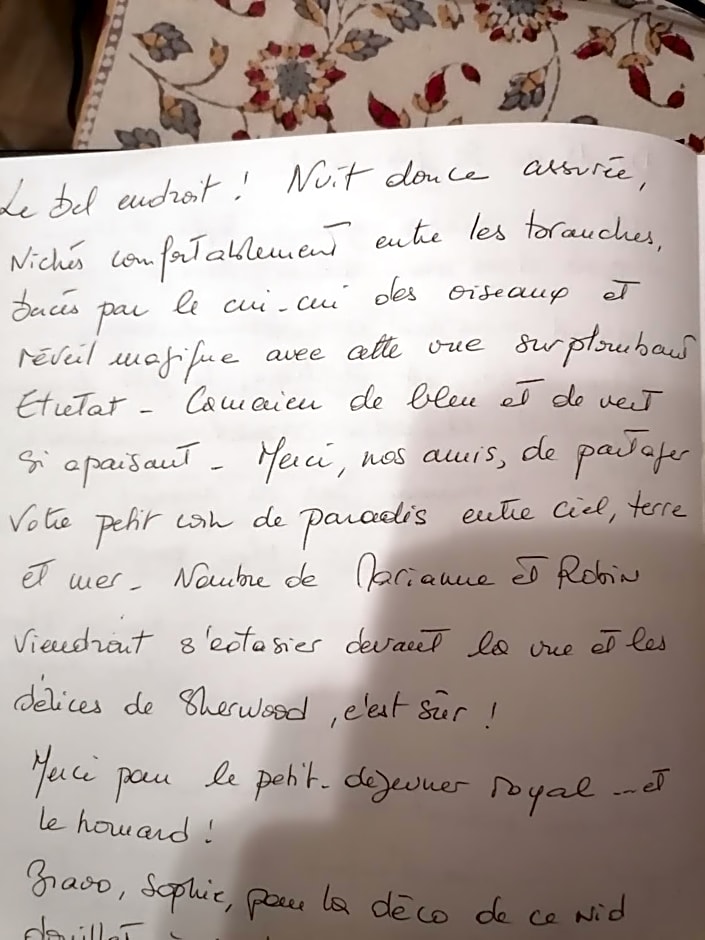 Le bel endroit ! Nuit douce assurée,
Nichés confortablement entre les branches,
bercés par le cui-cui des oiseaux et
réveil magifique avec cette vue surplombant
Etretat - Camaïeu de bleu et de vert
si apaisant - Merci, nos amis, de partager
Votre petit coin de paradis entre ciel, terre
et mer - Nombre de Marianne et Robin
Viendront s'extasier devant la vue et les
délices de Sherwood, c'est sûr !
Merci pour le petit-dejeuner royal ... et
le homard !
Bravo, Sophie, pour la déco de ce nid
douillet